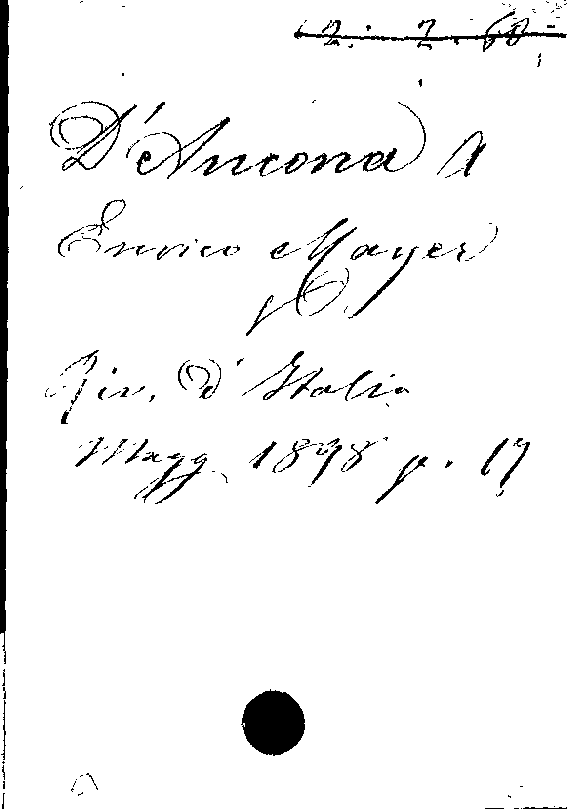 2. 2. 60
D'Ancona A
Enrico Mayer
Riv. D' Italia
Magg. 1898 p. 17